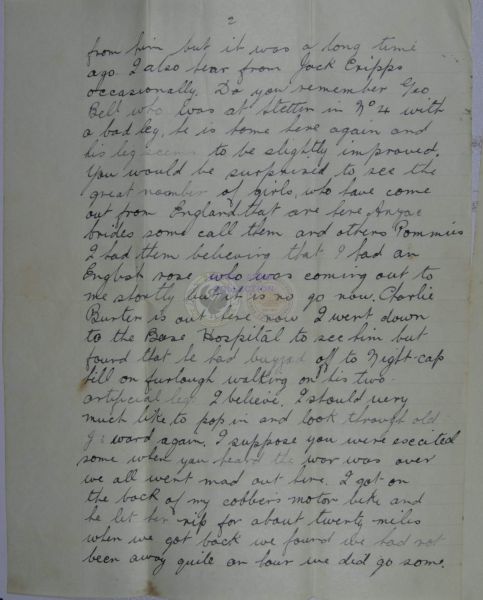 2
from him but it was a long time
ago. I also hear from Jack Cripps
occasionally. Do you remember Geo
Bell who was at Stettin in No 4 with
a bad leg, he is home here again and
his leg seems to be slightly improved.
You would be surprised to see the
great number of girls, who have come
out from England that are here, Anzac
brides some call them and others Pommies
I had them believing that I had an
English rose who was coming out to
me shortly but it is no go now. Charlie
Burter is out here now I went down
to the Base Hospital to see him but
found that he had off to Night-cap
till on furlough walking on his two
artificial legs I believe. I should very
much like to pop in and look through old
ward again. I suppose you were excited
some when you heard the war was over
we all went mad out here. I got on
the back of my cobbers motor bike and
he let her rip for about twenty miles
when we got back we found we had not
been away quite an hour we did go some.